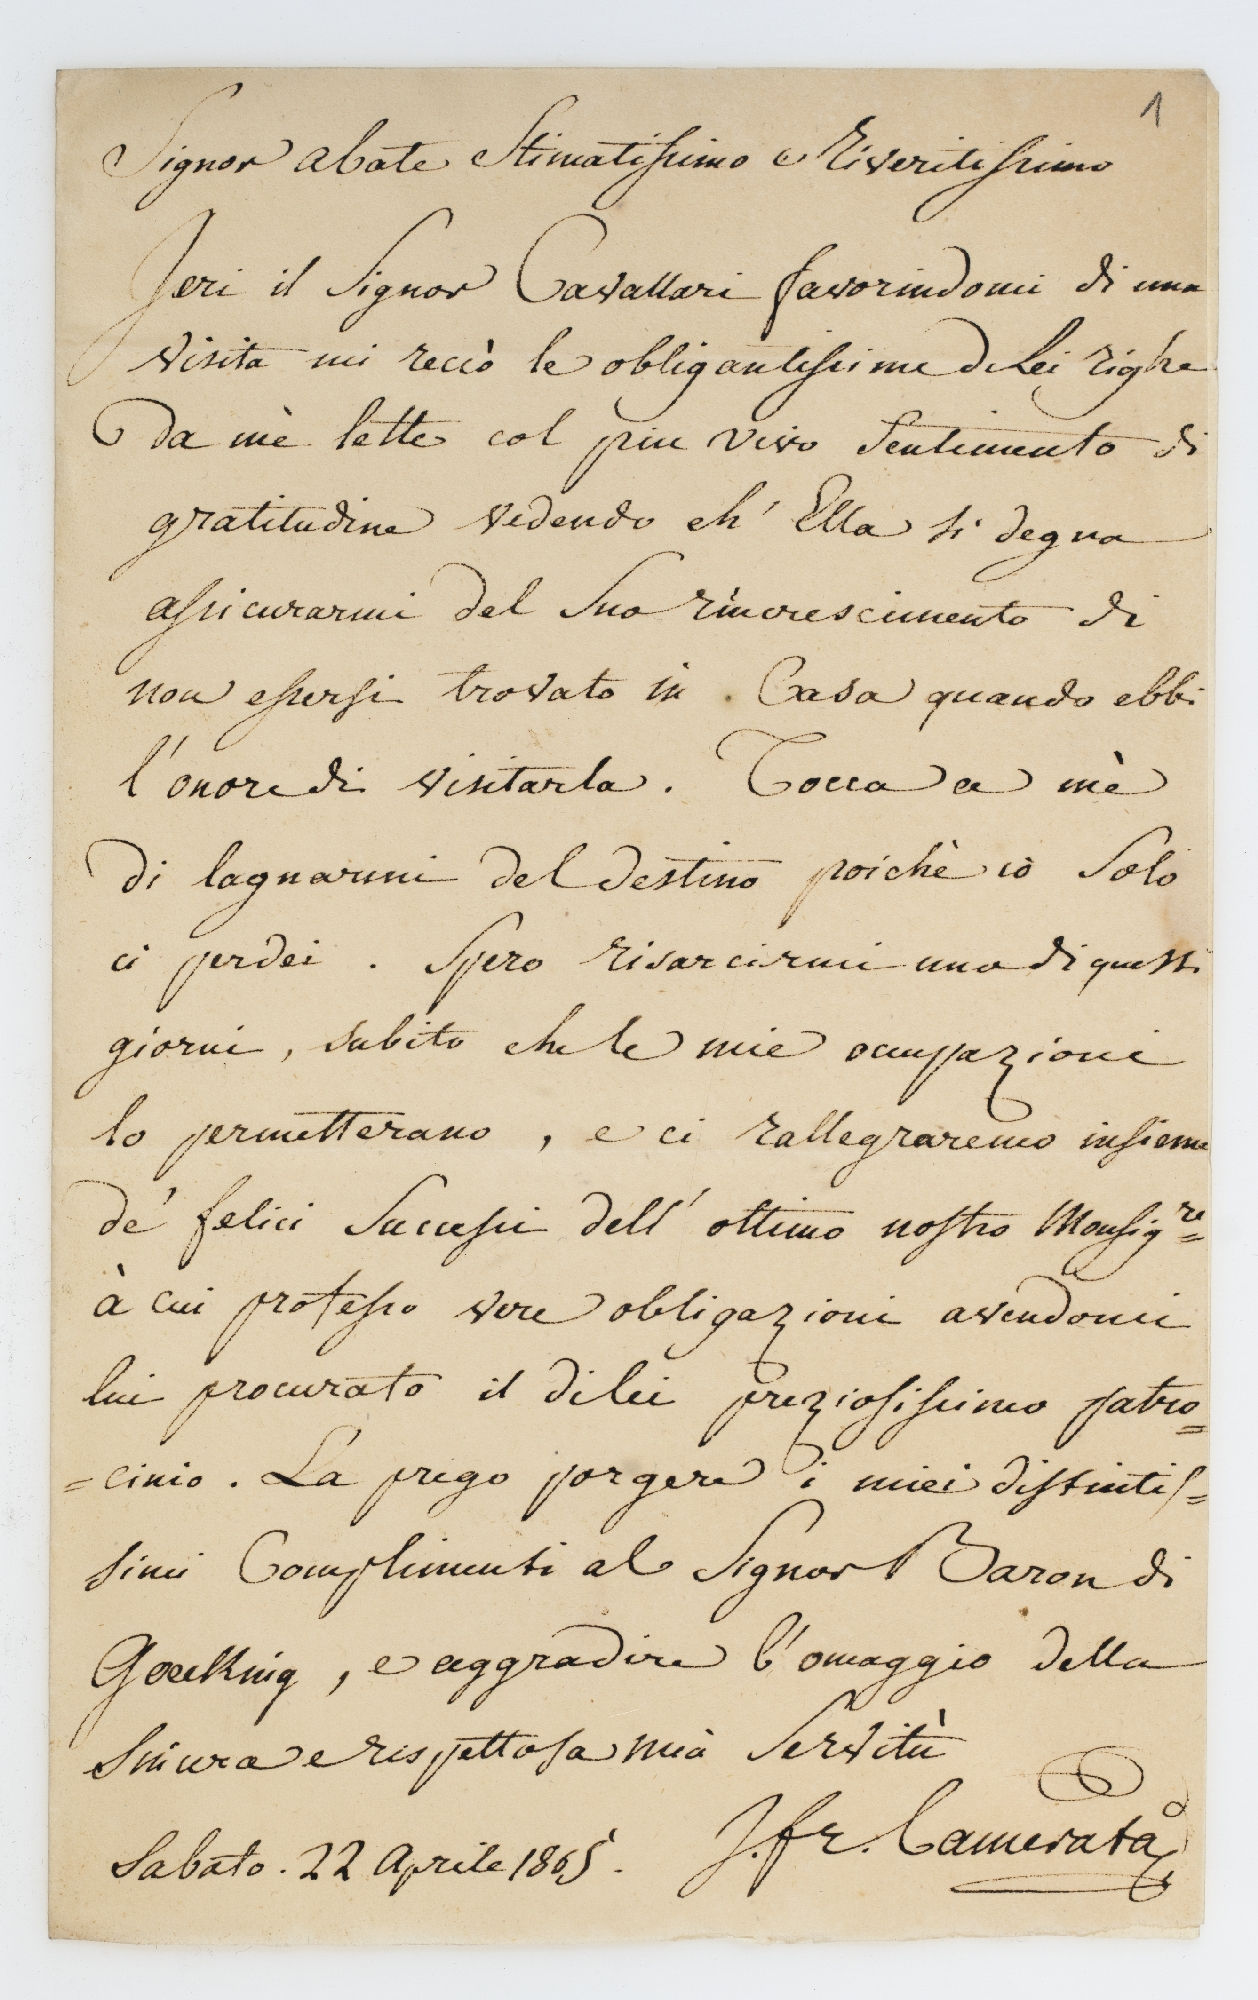 1
Signor abate Stimatissimo e Riveritissimo
Jeri il Signor Cavallari favorindomi di una
visita mi recò le obligantissime di Lei righe
da mè lette col piu vivo Sentimento di
gratitudine vedendo ch' Ella si degna
assicurarmi del Suo rincrescimento di
non essersi trovato in Casa quando ebbi
l'onore di visitarla. Tocca a mè
di lagnarmi del destino poichè iò Solo
ci perdei. Spero risarcirmi uno di questi
giorni, subito che le mie occupazioni
lo permetterano, e ci rallegraremo insieme
de' felici Successi dell' ottimo nostro Monsig.re
à cui professo vere obligazioni avendomi
lui procurato il di lei preziosissimo patro=
=cinio. La prego porgere i miei distintis=
simi Complimenti al Signor Baron di
Goeknig, e aggradire l'omaggio della
Sincera e rispettosa mià Servitù
J. fr. Camerata
Sabato. 22 Aprile 1865.